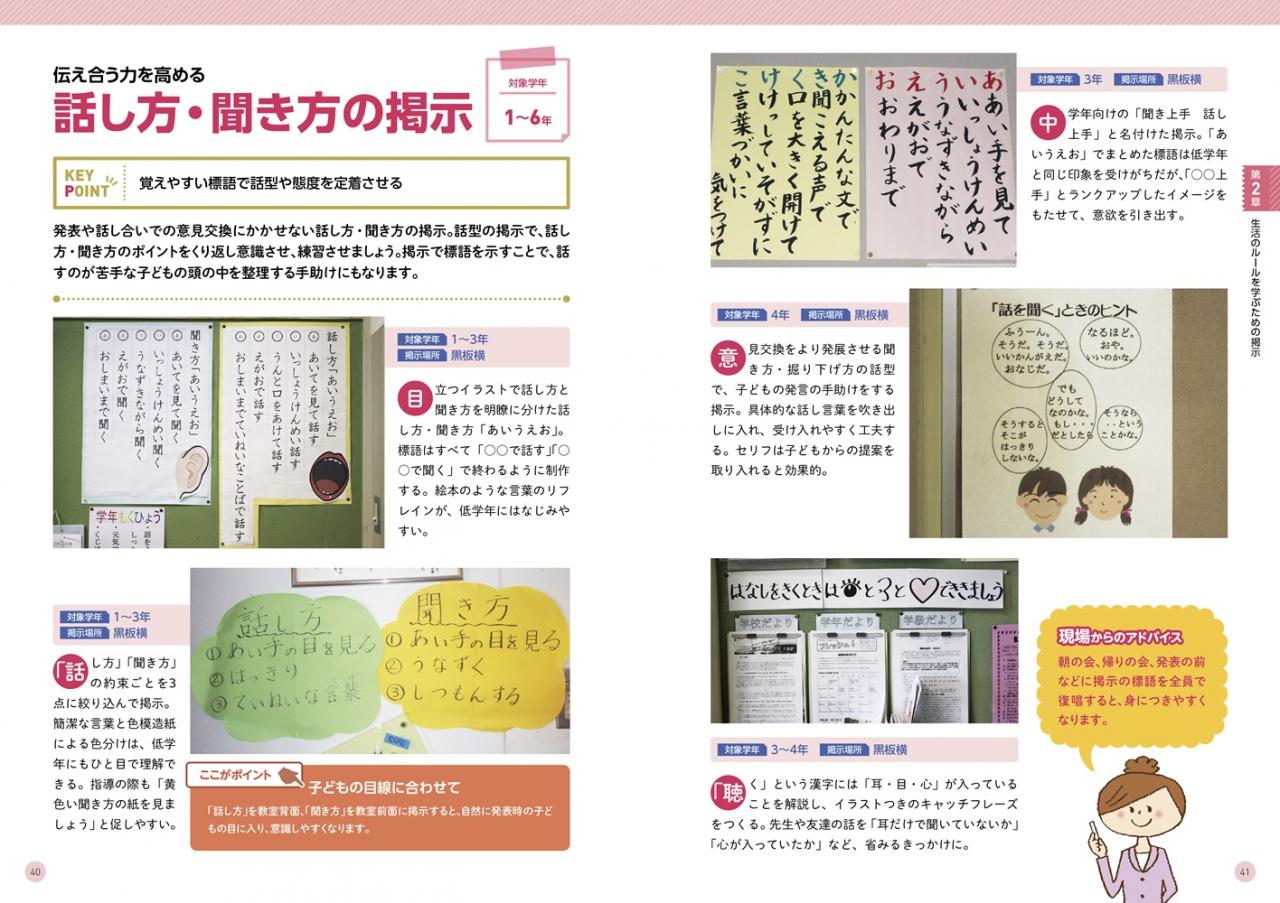 伝え合う力を高める
話し方・聞き方の掲示
対象学年
1〜6年
KEY
POINT
覚えやすい標語で話型や態度を定着させる
発表や話し合いでの意見交換にかかせない話し方・聞き方の掲示。話型の掲示で、話し
方・聞き方のポイントをくり返し意識させ、練習させましょう。掲示で標語を示すことで、話
すのが苦手な子どもの頭の中を整理する手助けにもなります。
話し方「あいうえお」
あ あいてを見て話す
い いっしょうけんめい話す
う うんと口をあけて話す
え えがおで話す
お おしまいまでていねいなことばで話す
聞き方「あいうえお」
あ あいてを見て聞く
い いっしょうけんめい聞く
う うなずきながら聞く
え えがおで聞く
お おしまいまで聞く
学年もくひょう
対象学年 1〜3年
掲示場所 黒板横
目立つイラストで話し方と
聞き方を明瞭に分けた話
し方・聞き方「あいうえお」。
標語はすべて「○○で話す」「○
○で聞く」で終わるように制作
する。絵本のような言葉のリフ
レインが、低学年にはなじみや
すい。
対象学年 1〜3年
掲示場所 黒板横
「話し方」「聞き方」
の約束ごとを3
点に絞り込んで掲示。
簡潔な言葉と色模造紙
による色分けは、低学
年にもひと目で理解で
きる。指導の際も「黄
色い聞き方の紙を見ま
しょう」と促しやすい。
話し方
①あい手の目を見る
②はっきり
③ていねいな言葉
聞き方
①あい手の目を見る
②うなずく
③しつもんする
ここがポイント
子どもの目線に合わせて
「話し方」を教室背面、「聞き方」を教室前面に掲示すると、自然に発表時の子ど
もの目に入り、意識しやすくなります。
40
ああい手を見て
いいっしょうけんめい
ううなずきながら
ええがおで
おおわりまで
かかんたんな文で
き聞こえる声で
く口を大きく開けて
けけっしていそがずに
こ言葉づかいに
気をつけて
対象学年 3年 掲示場所 黒板横
中学年向けの「聞き上手 話し
上手」と名付けた掲示。「あ
いうえお」でまとめた標語は低学年
と同じ印象を受けがちだが、「○○上
手」とランクアップしたイメージを
もたせて、意欲を引き出す。
第2章
生活のルールを学ぶための掲示
対象学年 4年 掲示場所 黒板横
意見交換をより発展させる聞
き方・掘り下げ方の話型
で、子どもの発言の手助けをする
掲示。具体的な話し言葉を吹き出
しに入れ、受け入れやすく工夫す
る。セリフは子どもからの提案を
取り入れると効果的。
「話を聞く」ときのヒント
ふうーん。
そうだ。そうだ。
いいかんがえだ。
おなじだ。
なるほど。
おや。
いいのかな。
でも
どうして
なのかな。
もし・・・
だとしたら
そうすると
そこが
はっきり
しないな。
そうなら
・・という
ことかな。
はなしをきくときは と と できましょう
学校だより
学年だより
学級だより
対象学年 3〜4年 掲示場所 黒板横
「聴く」という漢字には「耳・目・心」が入っている
ことを解説し、イラストつきのキャッチフレーズ
をつくる。先生や友達の話を「耳だけで聞いていないか」
「心が入っていたか」など、省みるきっかけに。
現場からのアドバイス
朝の会、帰りの会、発表の前
などに掲示の標語を全員で
復唱すると、身につきやすく
なります。
41